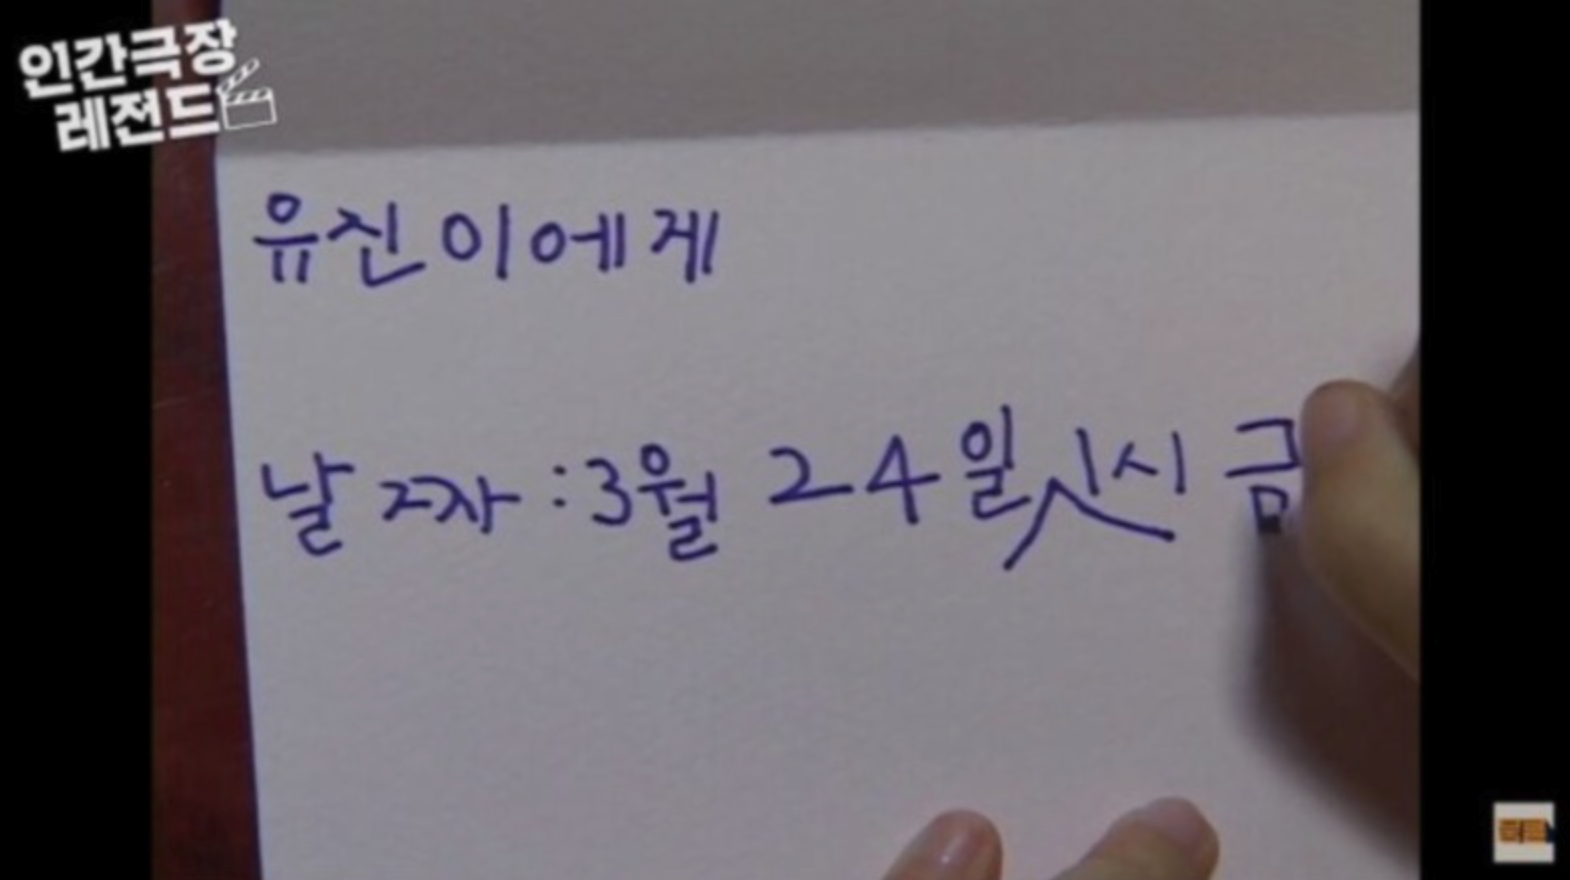 인간극장
레전드
유진이에게
날짜:3월 24일 1시 금